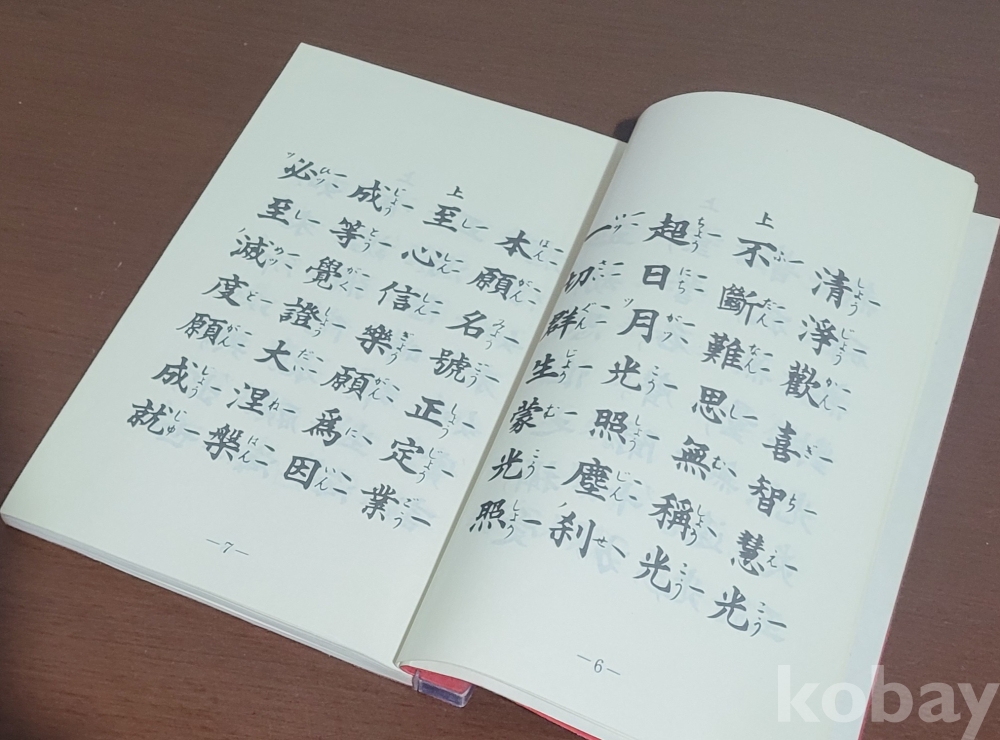 清淨歡喜智慧光
上
不斷難思無稱光
超日月光照塵刹
一切群生蒙光照
—6—
本願名號正定業
上
至心信樂願爲因
成等覺證大涅槃
必至滅度願成就
—7—
kobay